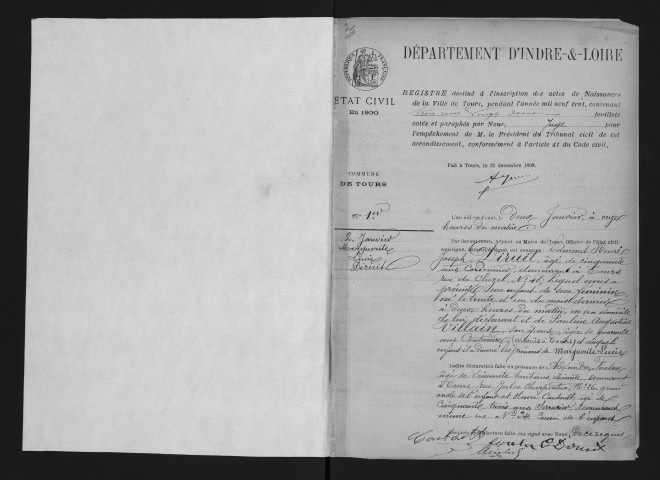 DÉPARTEMENT D'INDRE-&-LOIRE
RÉPUBLIQUE FRANÇAISE
ÉTAT CIVIL
En 1900
REGISTRE destiné à l'inscription des actes de Naissances
de la Ville de Tours, pendant l'année mil neuf cent, contenant
trois cent vingt deux feuillets
cotés et paraphés par Nous, Juge pour
l'empêchement de M. le Président du Tribunal civil de cet
arrondissement, conformément à l'article 41 du Code civil,
Fait à Tours, le 21 décembre 1899.
COMMUNE
DE TOURS
N° 1er
2 Janvier
Marguerite
Lucie
Diruit
L'an mil neuf cent, le Deux Janvier à onze
heures du matin
Par devant nous, Adjoint au Maire de Tours, Officier de l'État civil
soussigné, est comparu Edmond Henri
Joseph Diruit, âgé de cinquante
ans Cordonnier, demeurant à Tours
rue du N° 46, lequel nous a
présenté un enfant de sexe féminin
né le trente et un du mois dernier
à deux heures du matin, en son domicile
de lui déclarant et de Pauline Augustine
Villain, son épouse, âgée de quarante
ans Couturière, mariés à et auquel
enfant il a donné les prénoms de Marguerite Lucie
Ladite déclaration faite en présence de
âgé de soixante huit ans, demeurant
à Tours rue Jules Charpentier, N° 16, grand
oncle de l'enfant et Henri âgé de
cinquante trois ans Serrurier, demeurant
même rue N° 34 Cousin de l'enfant
lecture faite, ont signé avec Nous,